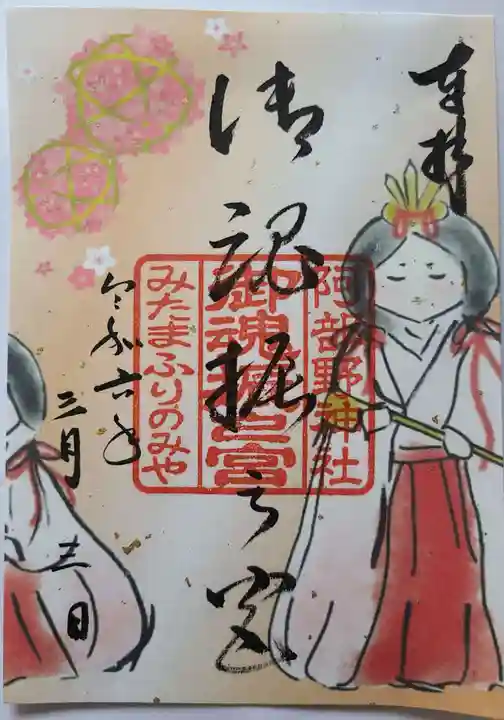 奉拝
阿部野神社
御魂振之宮
みたまふりのみや
御魂振之宮
令和六年
三月
三日